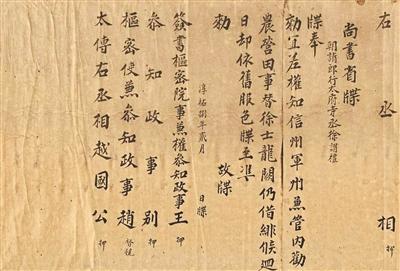 右丞相
尚書省牒
朝請郎行太府寺丞徐謂禮
牒奉
勑宜差權知信州軍州兼管內勸
農營田事替徐士龍闕仍借緋候迴
日却依舊服色牒至準
勑 故牒
淳祐捌年貳月 日牒
簽書樞密院事兼權參知政事王 押
參知政事別 押
樞密使兼參知政事趙 督視
太傅右丞相越國公 押